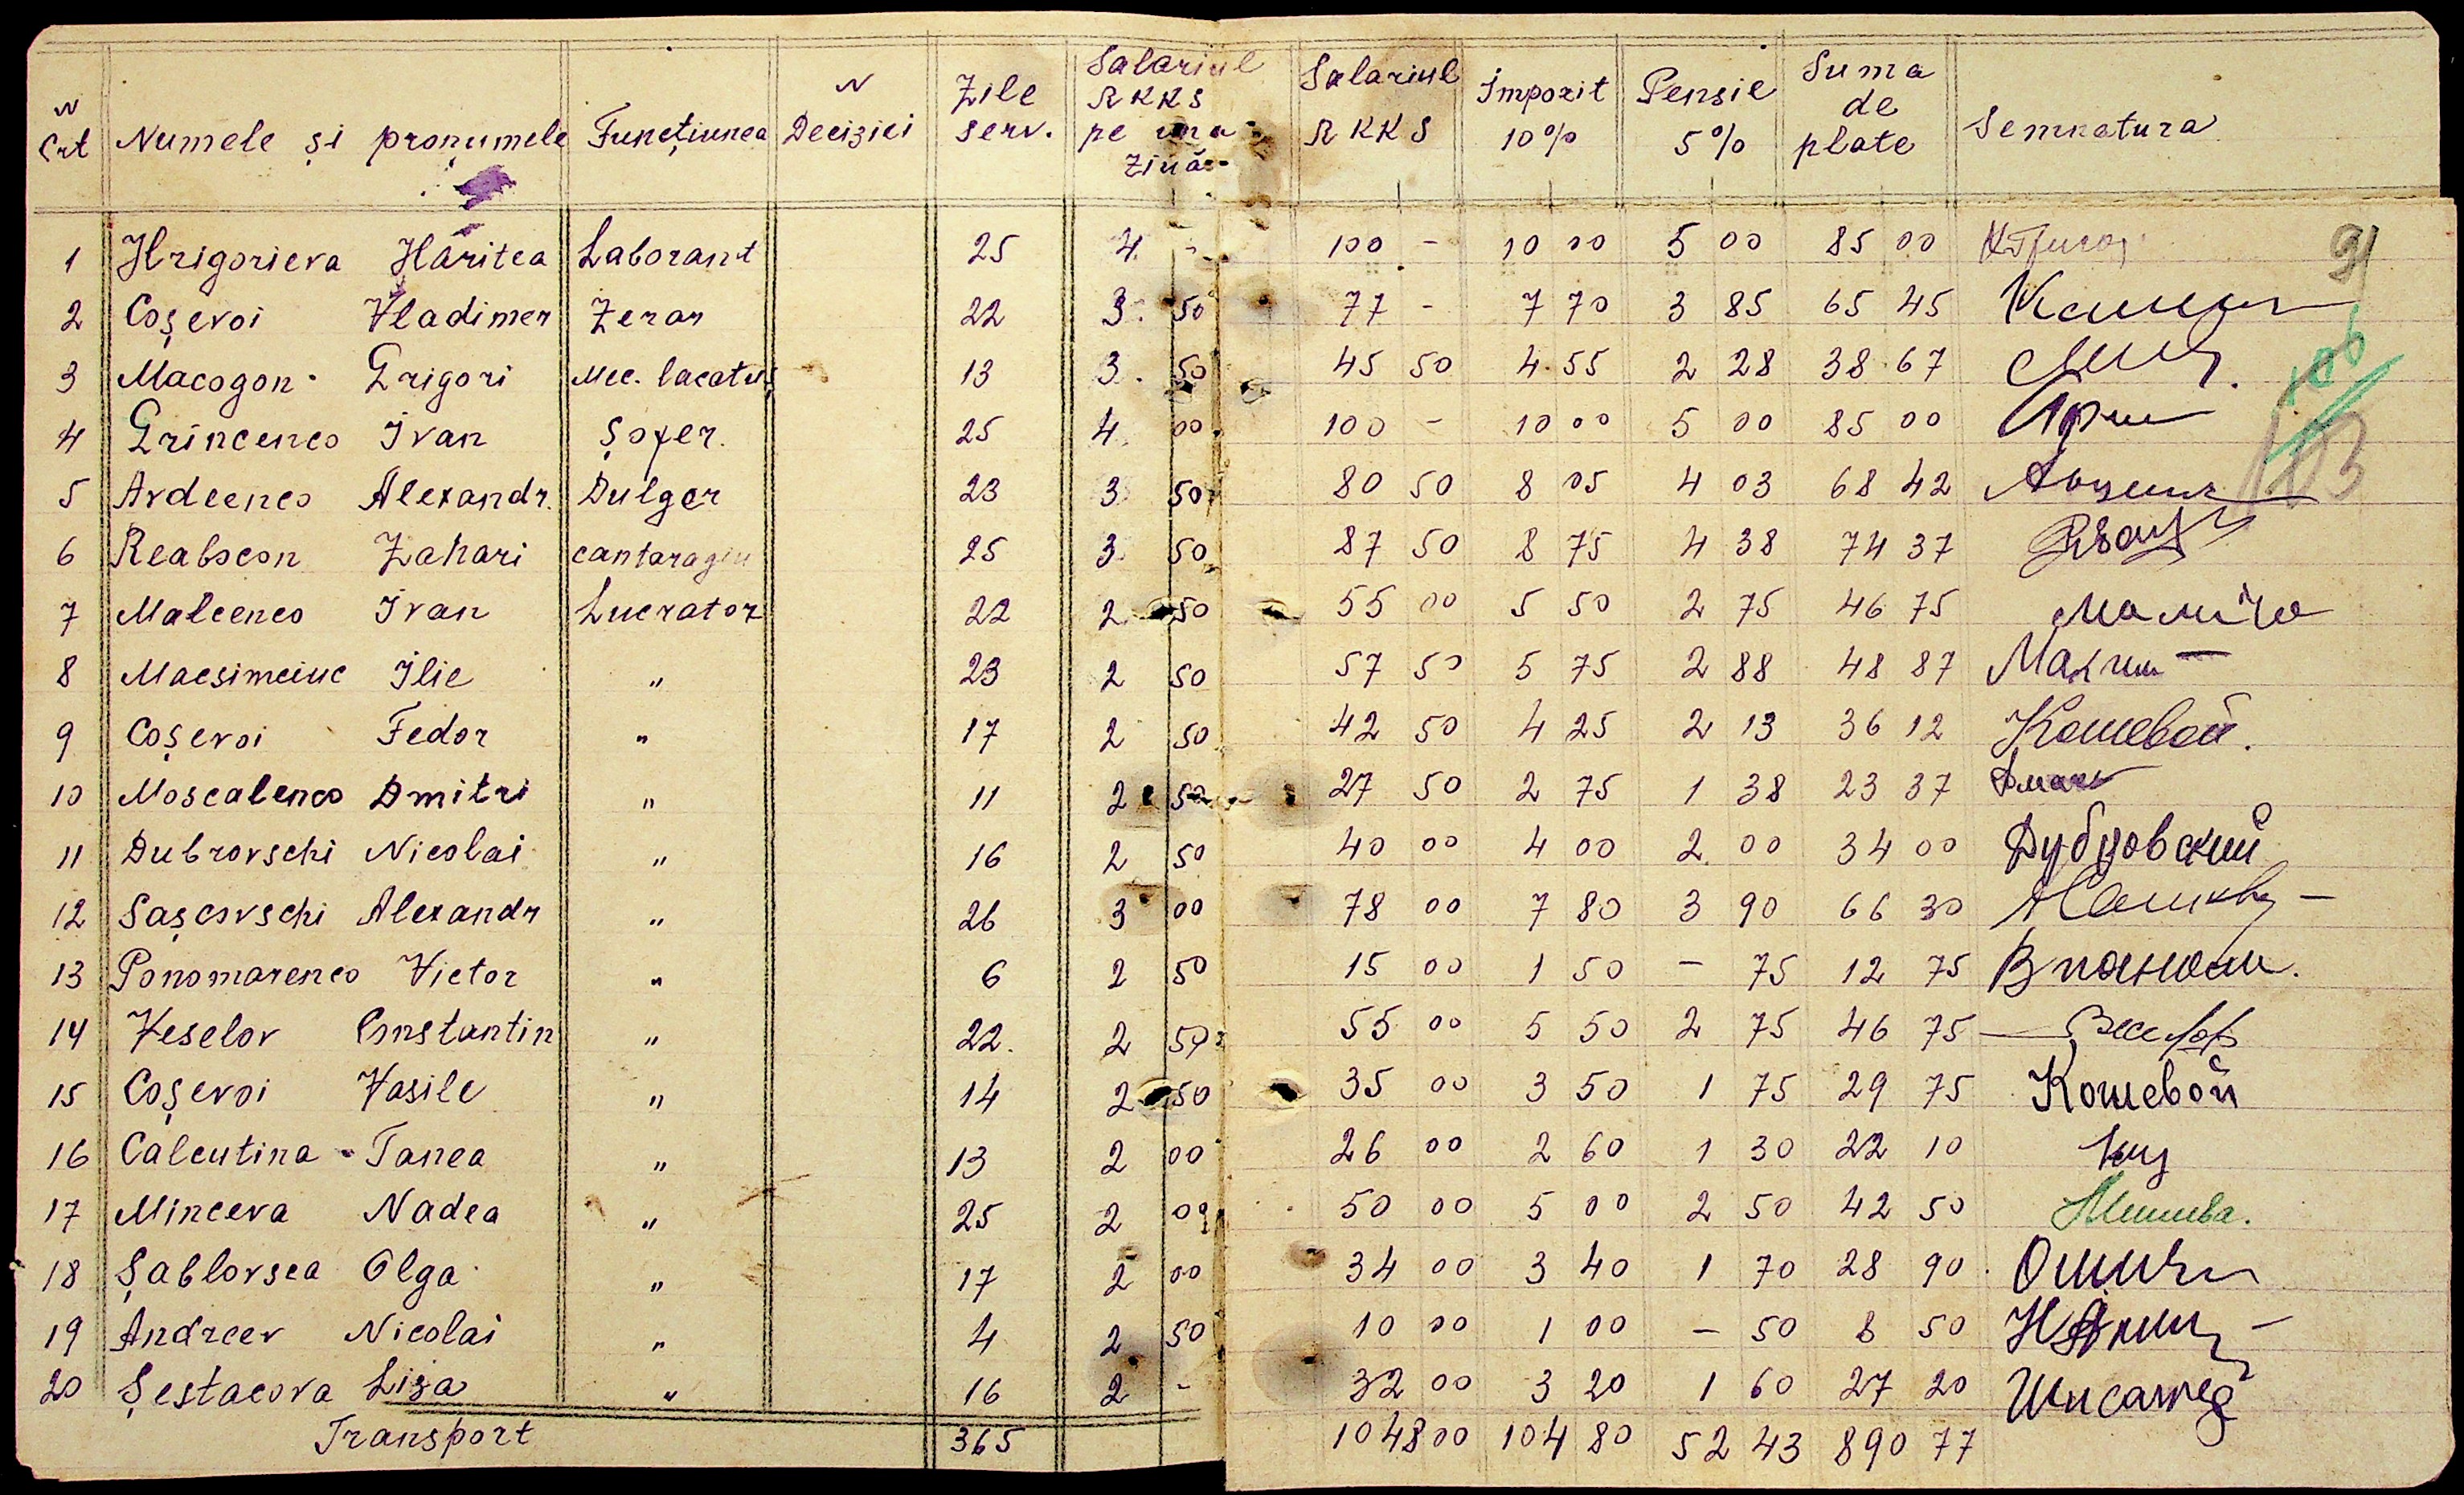 N Crt Numele și pronumele Funcțiunea N Deciziei Zile serv. Salariul RKKS pe una ziuă Salariul RKKS Impozit 10% Pensie 5% Suma de plate Semnatura
1 Hrigorieva Haritea Laborant 25 4 - 100 - 10 00 5 00 85 00
2 Coșevoi Vladimer Zerar 22 3 50 77 - 7 70 3 85 65 45
3 Macogon Grigori Mec. lacatuș 13 3 50 45 50 4 55 2 28 38 67
4 Grincenco Ivan Șofer. 25 4 00 100 - 10 00 5 00 85 00
5 Avdeenco Alexandr. Dulger 23 3 50 80 50 8 05 4 03 68 42
6 Reabocon Zahari cantaragiu 25 3 50 87 50 8 75 4 38 74 37
7 Malcenco Ivan Lucrator 22 2 50 55 00 5 50 2 75 46 75
8 Macsimciuc Ilie " 23 2 50 57 50 5 75 2 88 48 87
9 Coșevoi Fedor " 17 2 50 42 50 4 25 2 13 36 12 Кошевой.
10 Moscalenco Dmitri " 11 2 50 27 50 2 75 1 38 23 37
11 Dubrovschi Nicolai " 16 2 50 40 00 4 00 2 00 34 00 Дубровский
12 Sașcovschi Alexandr " 26 3 00 78 00 7 80 3 90 66 30
13 Ponomarenco Victor " 6 2 50 15 00 1 50 - 75 12 75
14 Veselov Constantin " 22. 2 50 55 00 5 50 2 75 46 75
15 Coșevoi Vasile " 14 2 50 35 00 3 50 1 75 29 75 Кошевой
16 Calcutina - Tanea " 13 2 00 26 00 2 60 1 30 22 10
17 Minceva Nadea " 25 2 00 50 00 5 00 2 50 42 50
18 Șablovsca Olga " 17 2 00 34 00 3 40 1 70 28 90
19 Andreev Nicolai " 4 2 50 10 00 1 00 - 50 8 50
20 Șestacova Liza " 16 2 - 32 00 3 20 1 60 27 20
Transport 365 1048 00 104 80 52 43 890 77